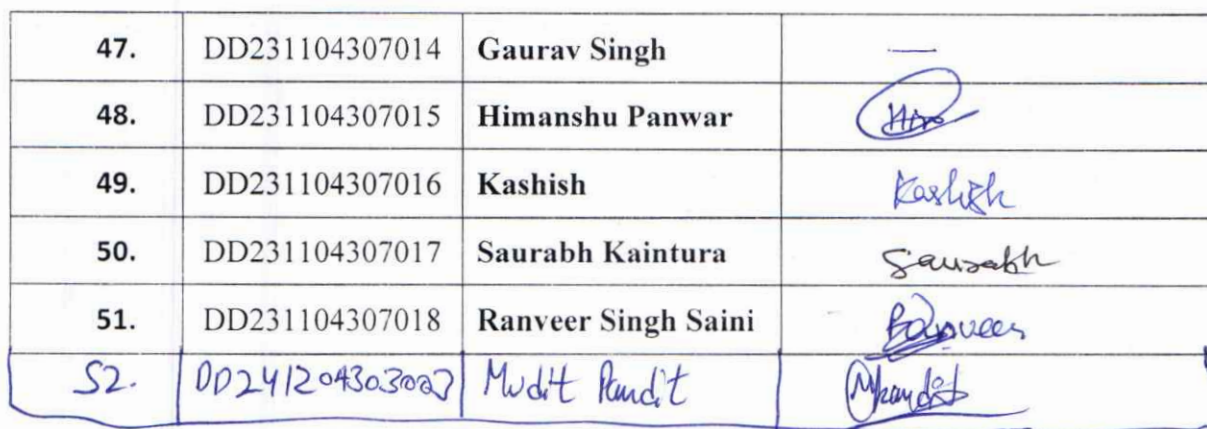 47. DD231104307014 Gaurav Singh —
48. DD231104307015 Himanshu Panwar
49. DD231104307016 Kashish Kashish
50. DD231104307017 Saurabh Kaintura Saurabh
51. DD231104307018 Ranveer Singh Saini Ranveer
52. Mudit Pandit